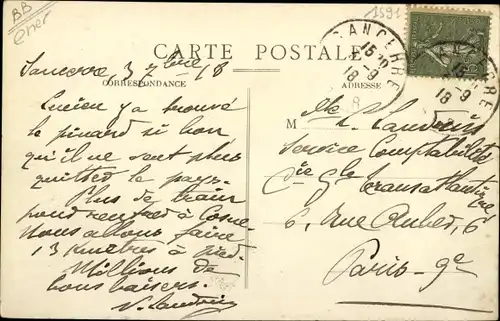 BB
Cher
1591
CARTE POSTALE
CORRESPONDANCE
ADRESSE
SANCERRE
15-10
-9
18
SANCERRE
-9
18
Sancerre 3 7bre 18
Lucien y a trouvé
le pinard si bon
qu'il ne veut plus
quitter le pays.
Plus de train
pour
à Cosne
Nous allons faire
13 Kmètres à pied.
Millions de
bons baisers.
M
Mlle
Service Comptabilité
Cie Gle Transatlantique
6, Rue Auber, 6
Paris - 9e